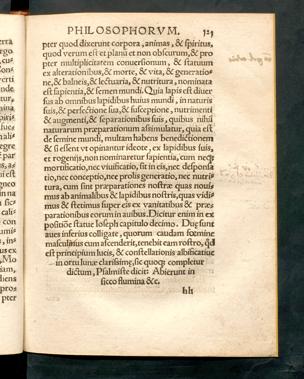 PHILOSOPHORVM. 329
pter quod dixerunt corpora, animas, & spiritus,
quod verum est et planũ et non obscurum, & pro
pter multiplicitatem conuersionum, & statuum
ex alterationibus, & morte, & vita, & generatio-
ne, & balneis, & lectuaria, & nutritura, nominata
est sapientia, & semen mundi. Quia lapis est diuer
sus ab omnibus lapidibus huius mundi, in naturis
suis, & perfectione sua, & susceptione, nutrimenti
& augmenti, & separationibus suis, quibus nihil
naturarum præparationum assimulatur, quia est
de semine mundi, multam habens benedictionem
& si essent vt opinantur ideote, ex lapidibus suis,
et rogenijs, non nominaretur sapientia, cum neq;
mortificatio, nec viuificatio, sit in eis, nec desponsa
tio, nec conceptio, nec prolis generatio, nec nutri-
tura, cum sint præparationes nostræ quas noui-
mus ab animalibus & lapidibus nostris, quas vidi
mus & stetimus super eis ex vanitatibus & præ-
parationibus eorum in auibus. Dicitur enim in ex
positiõe statuæ Ioseph capitulo decimo. Duę sunt
aues inferius colligate, quorum caudam fœmine
masculinus cum ascenderit, tenebit eam rostro, qđ
est principium lucis, & constellationis albificatiue
in ortu lunæ clarissimę, sic quoq; completur
dictum, Psalmiste dicit: Abierunt in
sicco flumina &c.
hh